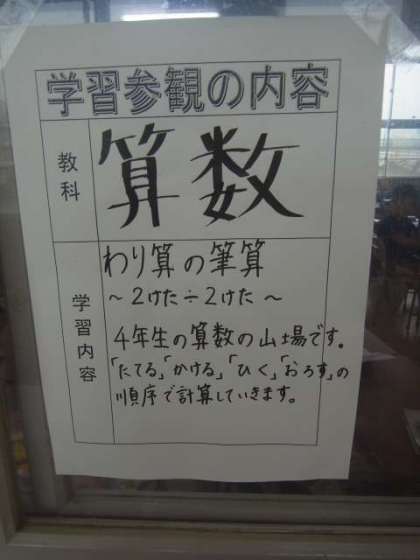 学習参観の内容
教科
算数
学習内容
わり算の筆算
～2けた÷2けた～
4年生の算数の山場です。
「たてる」「かける」「ひく」「おろす」の
順序で計算していきます。